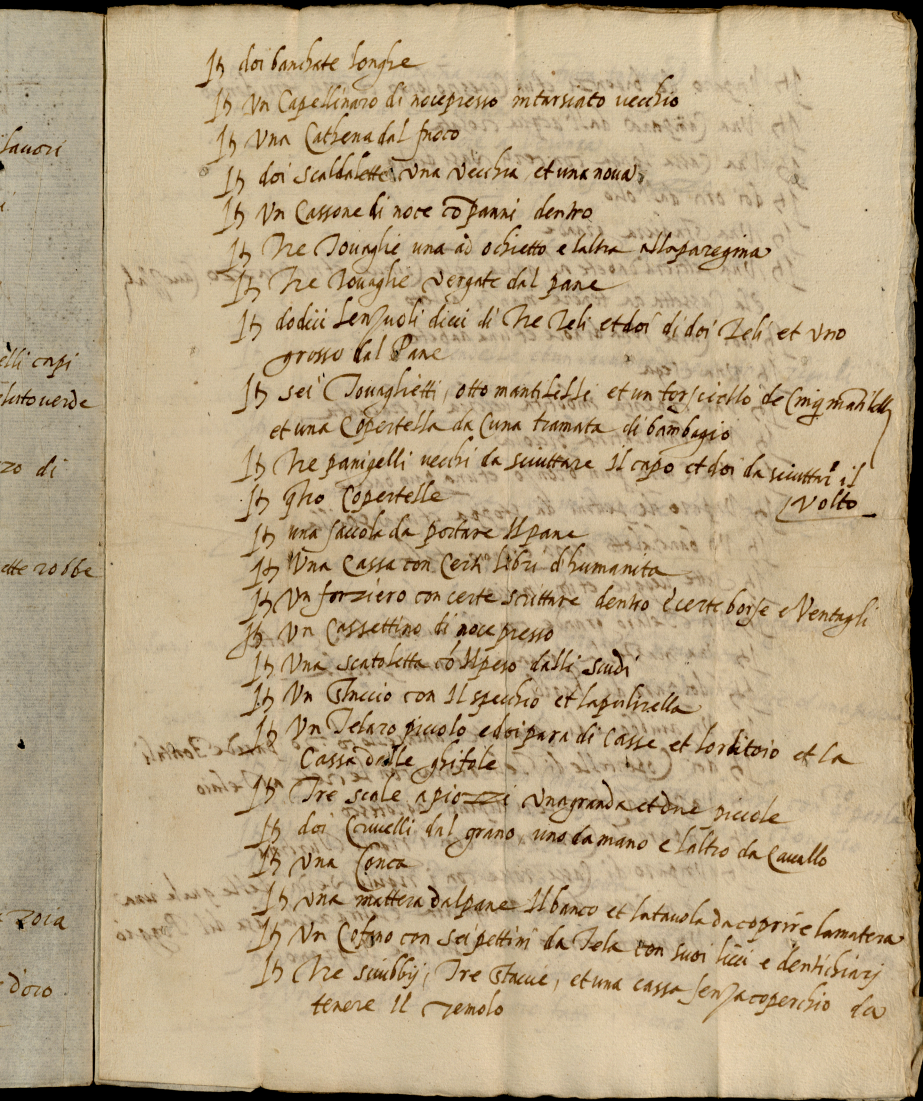 lauori
It doi banchate longhe
It Un Capellinaro di nocepresso intarsiato uecchio
It Una Cathena dal fuoco
It doi scaldaletti una vecchia et una noua
It Un Cassone di noce cō panni dentro
It Tre Touaglie una ad ochietto e laltra alla paregina
It Tre Touaglie vergate dal pane
It dodici lenzuoli dieci di Tre Teli et doi di doi Teli et uno
grosso dal Pane
elli capi
It sei Touaglietti, otto mantiletti et un forsciello de
lutouerde
et una Copertella da Cuna tramata di bambagio
zo di
It Tre panigelli uecchi da sciuttare il capo et doi da sciuttar il
Volto
It qtro Copertelle
It una saccola da portare Il pane
ette robbe
It Una Cassa con Certi libri d'humanita
It Un forziero con certe scritture dentro e certe borse e Ventagli
It Un Cassettino di nocepresso
It Una scatoletta cō Il peso dalli scudi
It Un Stuccio con Il specchio et la pulirella
It Un Telaro piccolo e doi para di casse et lorditoio et la
Cassa dalle ghifole
It Tre scale a piozzi una granda et due piccole
It doi Criuelli dal grano, uno da mano e l'altro da Cauallo
It Una Conca
It Una mattera dal pane Il banco et la tauola da coprire la matera
It Un Cofano con sei pettini da Tela con suoi licci e dentichiarj
d'oro
It Tre sciubbij, Tre stucie, et una cassa senza coperchio da
tenere Il remolo